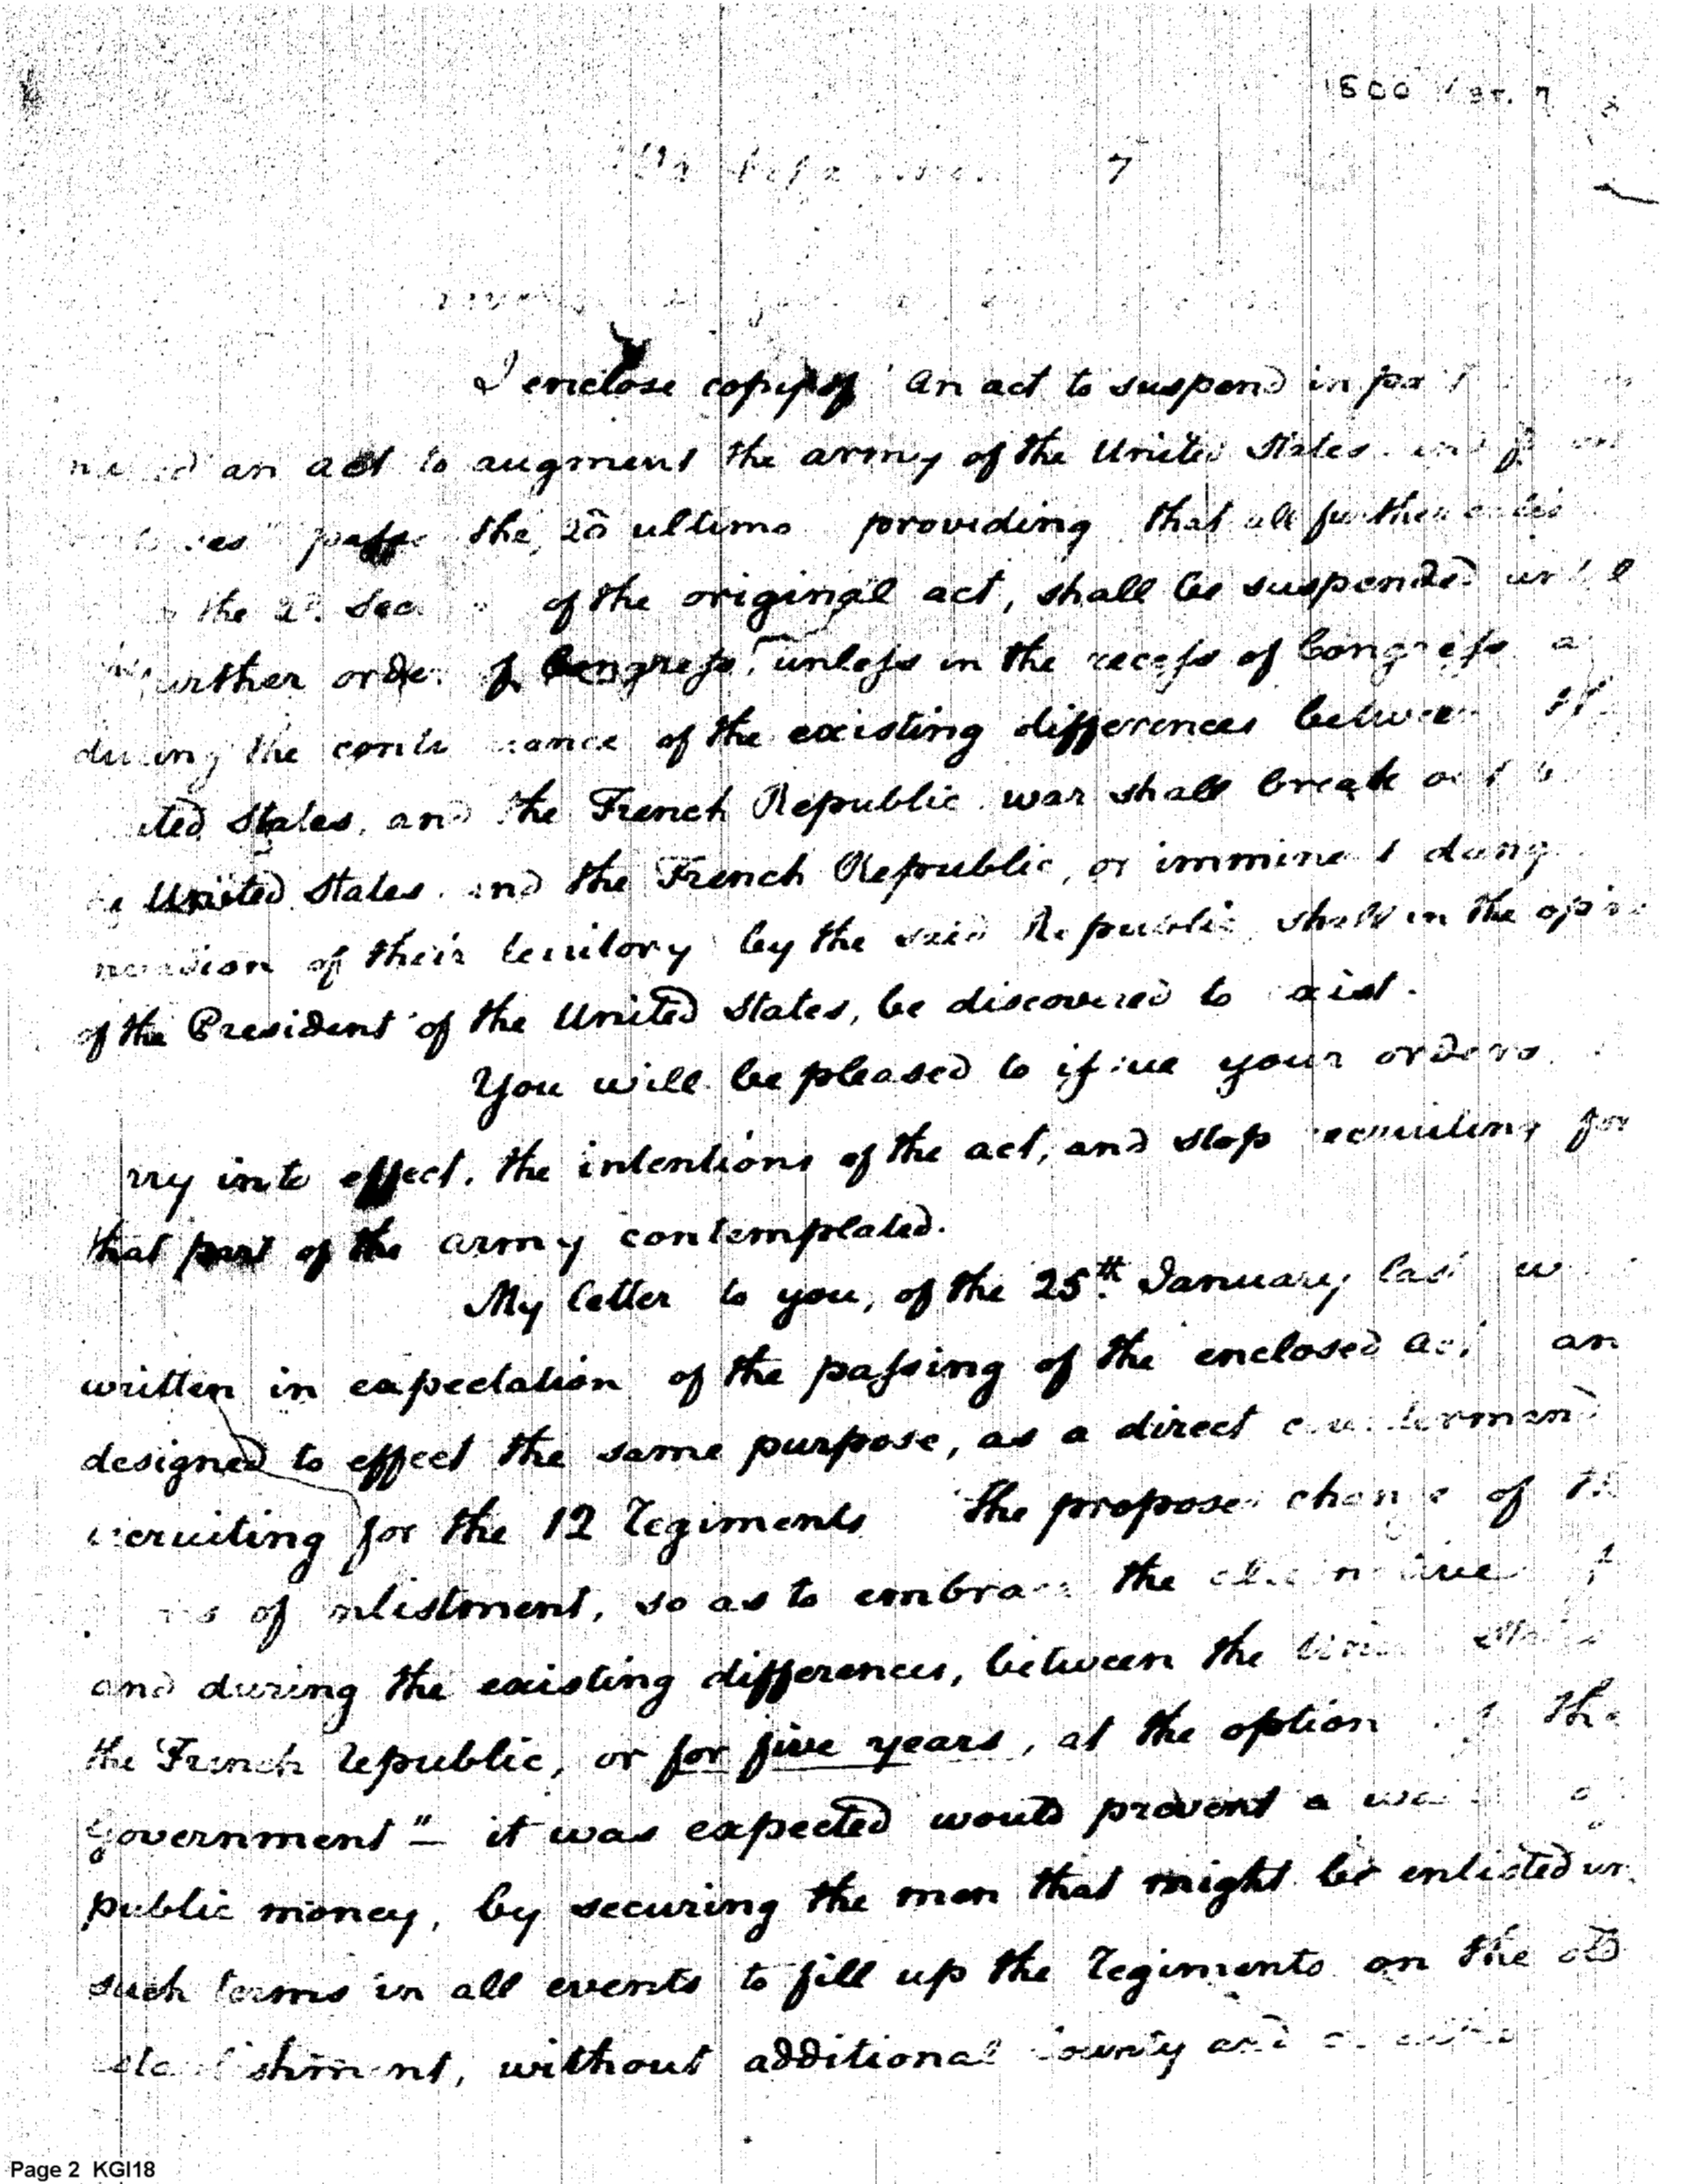 1800
7
I enclose copy of an act to suspend in part
an act to augment the army of the United States and for
the 20 ultimo providing that all further
the 2d. Sec of the original act, shall be suspended until
further order of Congress, unless in the recess of Congress a
during the continuance of the existing differences between the
ited States, and the French Republic war shall break out
United States and the French Republic, or imminent dang
of their territory by the said Republic shall in the opin
of the President of the United States, be discovered to exist.
You will be pleased to issue your orders
rry into effect, the intentions of the act, and stop recruiting for
that part of the army contemplated.
My letter to you, of the 25th. January last w
written in expectation of the passing of the enclosed act an
designed to effect the same purpose, as a direct countermand
recruiting for the 12 Regiments The proposed change of
of enlistment, so as to embrace the
and during the existing differences, between the
the French Republic, or for five years, at the option of the
Government" — it was expected would prevent a
public money, by securing the men that might be enlisted un
such terms in all events to fill up the Regiments on the old
establishment, without additional bounty and
Page 2 KGI18